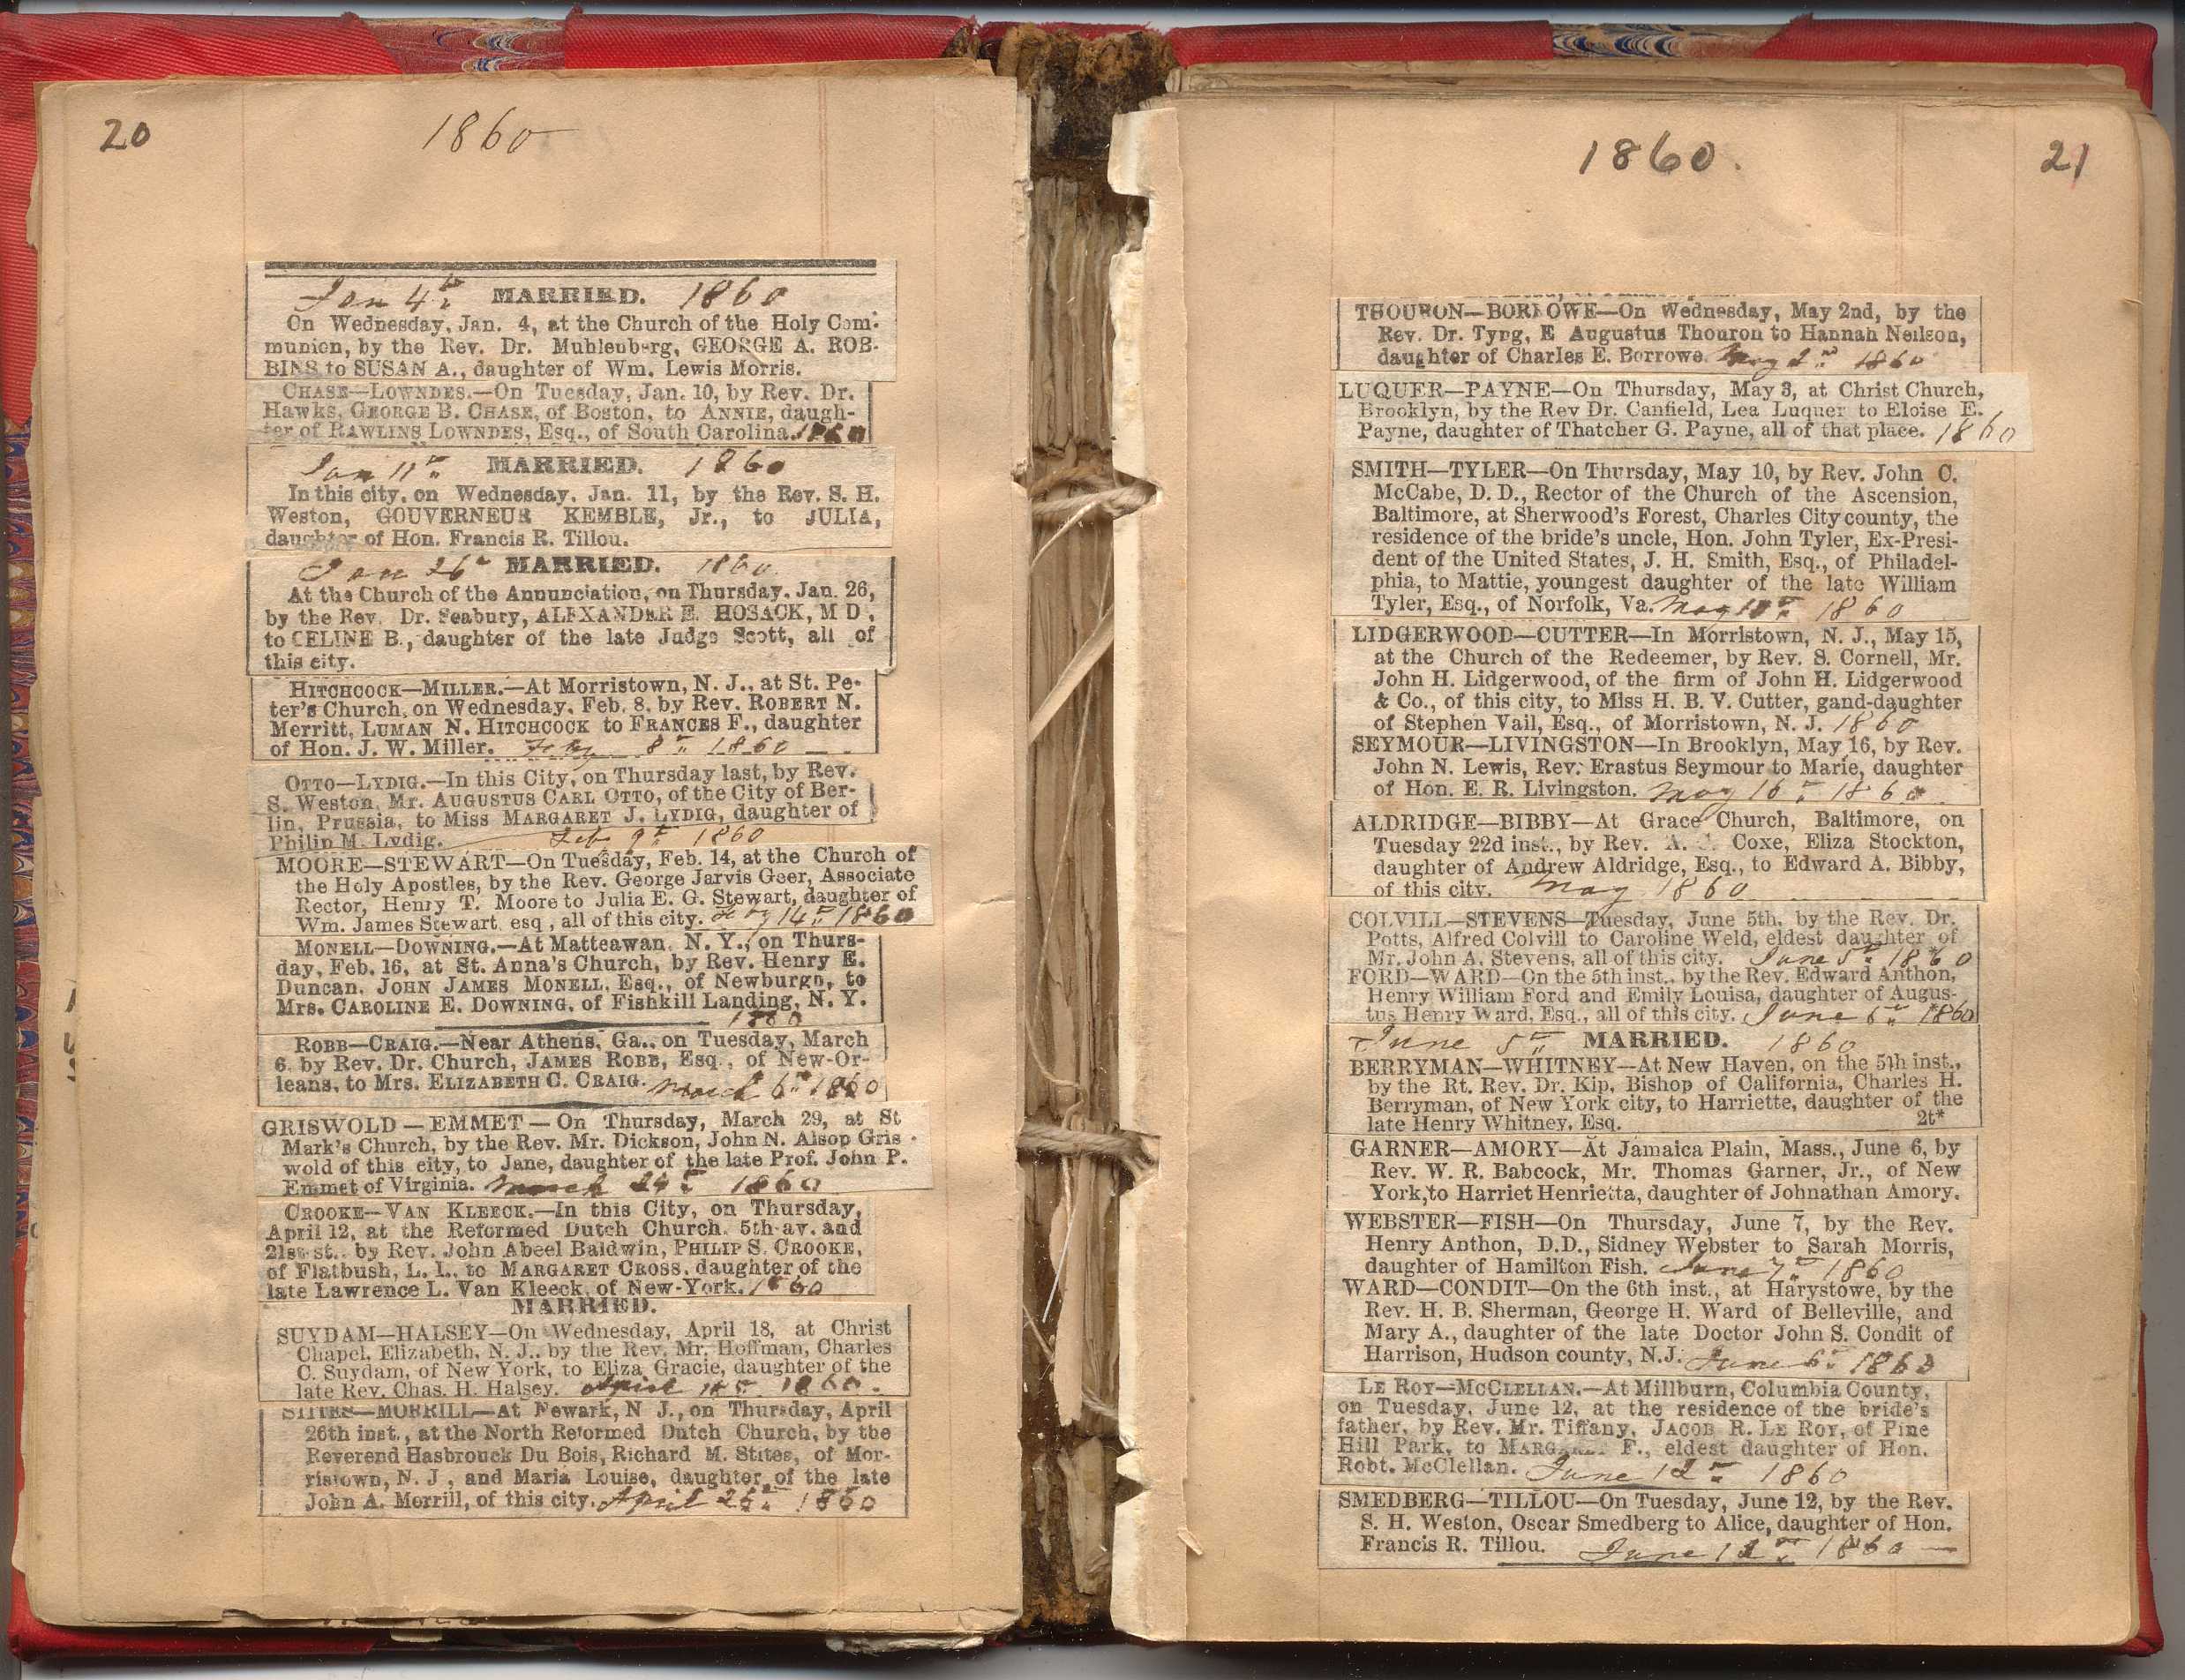 20
1860
Jan 4th MARRIED. 1860
On Wednesday, Jan. 4, at the Church of the Holy Com-
munion, by the Rev. Dr. Muhlenberg, GEORGE A. ROB-
BINS to SUSAN A., daughter of Wm. Lewis Morris.
CHASE—LOWNDES.—On Tuesday, Jan. 10, by Rev. Dr.
Hawks, GEORGE B. CHASE, of Boston, to ANNIE, daugh-
ter of RAWLINS LOWNDES, Esq., of South Carolina. 1860
Jan 11th MARRIED. 1860
In this city, on Wednesday, Jan. 11, by the Rev. S. H.
Weston, GOUVERNEUR KEMBLE, Jr., to JULIA,
daughter of Hon. Francis R. Tillou.
Jan 26th MARRIED. 1860
At the Church of the Annunciation, on Thursday, Jan. 26,
by the Rev. Dr. Seabury, ALEXANDER E. HOSACK, M D,
to CELINE B., daughter of the late Judge Scott, all of
this city.
HITCHCOCK—MILLER.—At Morristown, N. J., at St. Pe-
ter's Church, on Wednesday, Feb. 8, by Rev. ROBERT N.
Merritt, LUMAN N. HITCHCOCK to FRANCES F., daughter
of Hon. J. W. Miller. Feby 8th 1860
OTTO—LYDIG.—In this City, on Thursday last, by Rev.
S. Weston, Mr. AUGUSTUS CARL OTTO, of the City of Ber-
lin, Prussia, to Miss MARGARET J. LYDIG, daughter of
Philip M. Lydig. Feb 9th 1860
MOORE—STEWART—On Tuesday, Feb. 14, at the Church of
the Holy Apostles, by the Rev. George Jarvis Geer, Associate
Rector, Henry T. Moore to Julia E. G. Stewart, daughter of
Wm. James Stewart, esq, all of this city. Feby 14th 1860
MONELL—DOWNING.—At Matteawan, N. Y., on Thurs-
day, Feb. 16, at St. Anna's Church, by Rev. Henry E.
Duncan, JOHN JAMES MONELL, Esq., of Newburgh, to
Mrs. CAROLINE E. DOWNING, of Fishkill Landing, N. Y.
1860
ROBB—CRAIG.—Near Athens, Ga., on Tuesday, March
6, by Rev. Dr. Church, JAMES ROBB, Esq., of New-Or-
leans, to Mrs. ELIZABETH C. CRAIG. March 6th 1860
GRISWOLD—EMMET—On Thursday, March 29, at St
Mark's Church, by the Rev. Mr. Dickson, John N. Alsop Gris-
wold of this city, to Jane, daughter of the late Prof. John P.
Emmet of Virginia. March 29th 1860
CROOKE—VAN KLEECK.—In this City, on Thursday,
April 12, at the Reformed Dutch Church, 5th-av. and
21st-st., by Rev. John Abeel Baldwin, PHILIP S. CROOKE,
of Flatbush, L. I., to MARGARET CROSS, daughter of the
late Lawrence L. Van Kleeck, of New-York. 1860
MARRIED.
SUYDAM—HALSEY—On Wednesday, April 18, at Christ
Chapel, Elizabeth, N. J., by the Rev. Mr. Hoffman, Charles
C. Suydam, of New York, to Eliza Gracie, daughter of the
late Rev. Chas. H. Halsey. April 18th 1860.
STITES—MORRILL—At Newark, N J., on Thursday, April
26th inst., at the North Reformed Dutch Church, by the
Reverend Hasbrouck Du Bois, Richard M. Stites, of Mor-
ristown, N. J, and Maria Louise, daughter of the late
John A. Morrill, of this city. April 26th 1860
1860.
21
THOURON—BORROWE—On Wednesday, May 2nd, by the
Rev. Dr. Tyng, E Augustus Thouron to Hannah Neilson,
daughter of Charles E. Borrowe. May 2nd 1860
LUQUER—PAYNE—On Thursday, May 3, at Christ Church,
Brooklyn, by the Rev Dr. Canfield, Lea Luquer to Eloise E.
Payne, daughter of Thatcher G. Payne, all of that place. 1860
SMITH—TYLER—On Thursday, May 10, by Rev. John C.
McCabe, D. D., Rector of the Church of the Ascension,
Baltimore, at Sherwood's Forest, Charles City county, the
residence of the bride's uncle, Hon. John Tyler, Ex-Presi-
dent of the United States, J. H. Smith, Esq., of Philadel-
phia, to Mattie, youngest daughter of the late William
Tyler, Esq., of Norfolk, Va. May 10th 1860
LIDGERWOOD—CUTTER—In Morristown, N. J., May 15,
at the Church of the Redeemer, by Rev. S. Cornell, Mr.
John H. Lidgerwood, of the firm of John H. Lidgerwood
& Co., of this city, to Miss H. B. V. Cutter, gand-daughter
of Stephen Vail, Esq., of Morristown, N. J. 1860
SEYMOUR—LIVINGSTON—In Brooklyn, May 16, by Rev.
John N. Lewis, Rev. Erastus Seymour to Marie, daughter
of Hon. E. R. Livingston. May 16th 1860
ALDRIDGE—BIBBY—At Grace Church, Baltimore, on
Tuesday 22d inst., by Rev. Coxe, Eliza Stockton,
daughter of Andrew Aldridge, Esq., to Edward A. Bibby,
of this city. May 1860
COLVILL—STEVENS—Tuesday, June 5th, by the Rev. Dr.
Potts, Alfred Colvill to Caroline Weld, eldest daughter of
Mr. John A. Stevens, all of this city. June 5th 1860
FORD—WARD—On the 5th inst., by the Rev. Edward Anthon,
Henry William Ford and Emily Louisa, daughter of Augus-
tus Henry Ward, Esq., all of this city. June 5th 1860
June 5th MARRIED. 1860
BERRYMAN—WHITNEY—At New Haven, on the 5th inst.,
by the Rt. Rev. Dr. Kip, Bishop of California, Charles H.
Berryman, of New York city, to Harriette, daughter of the
late Henry Whitney, Esq. 2t*
GARNER—AMORY—At Jamaica Plain, Mass., June 6, by
Rev. W. R. Babcock, Mr. Thomas Garner, Jr., of New
York, to Harriet Henrietta, daughter of Johnathan Amory.
WEBSTER—FISH—On Thursday, June 7, by the Rev.
Henry Anthon, D.D., Sidney Webster to Sarah Morris,
daughter of Hamilton Fish. June 7th 1860
WARD—CONDIT—On the 6th inst., at Harystowe, by the
Rev. H. B. Sherman, George H. Ward of Belleville, and
Mary A., daughter of the late Doctor John S. Condit of
Harrison, Hudson county, N.J. June 6th 1860
LE ROY—MCCLELLAN.—At Millburn, Columbia County,
on Tuesday, June 12, at the residence of the bride's
father, by Rev. Mr. Tiffany, JACOB R. LE ROY, of Pine
Hill Park, to MARGARET F., eldest daughter of Hon.
Robt. McClellan. June 12th 1860
SMEDBERG—TILLOU—On Tuesday, June 12, by the Rev.
S. H. Weston, Oscar Smedberg to Alice, daughter of Hon.
Francis R. Tillou. June 12th 1860